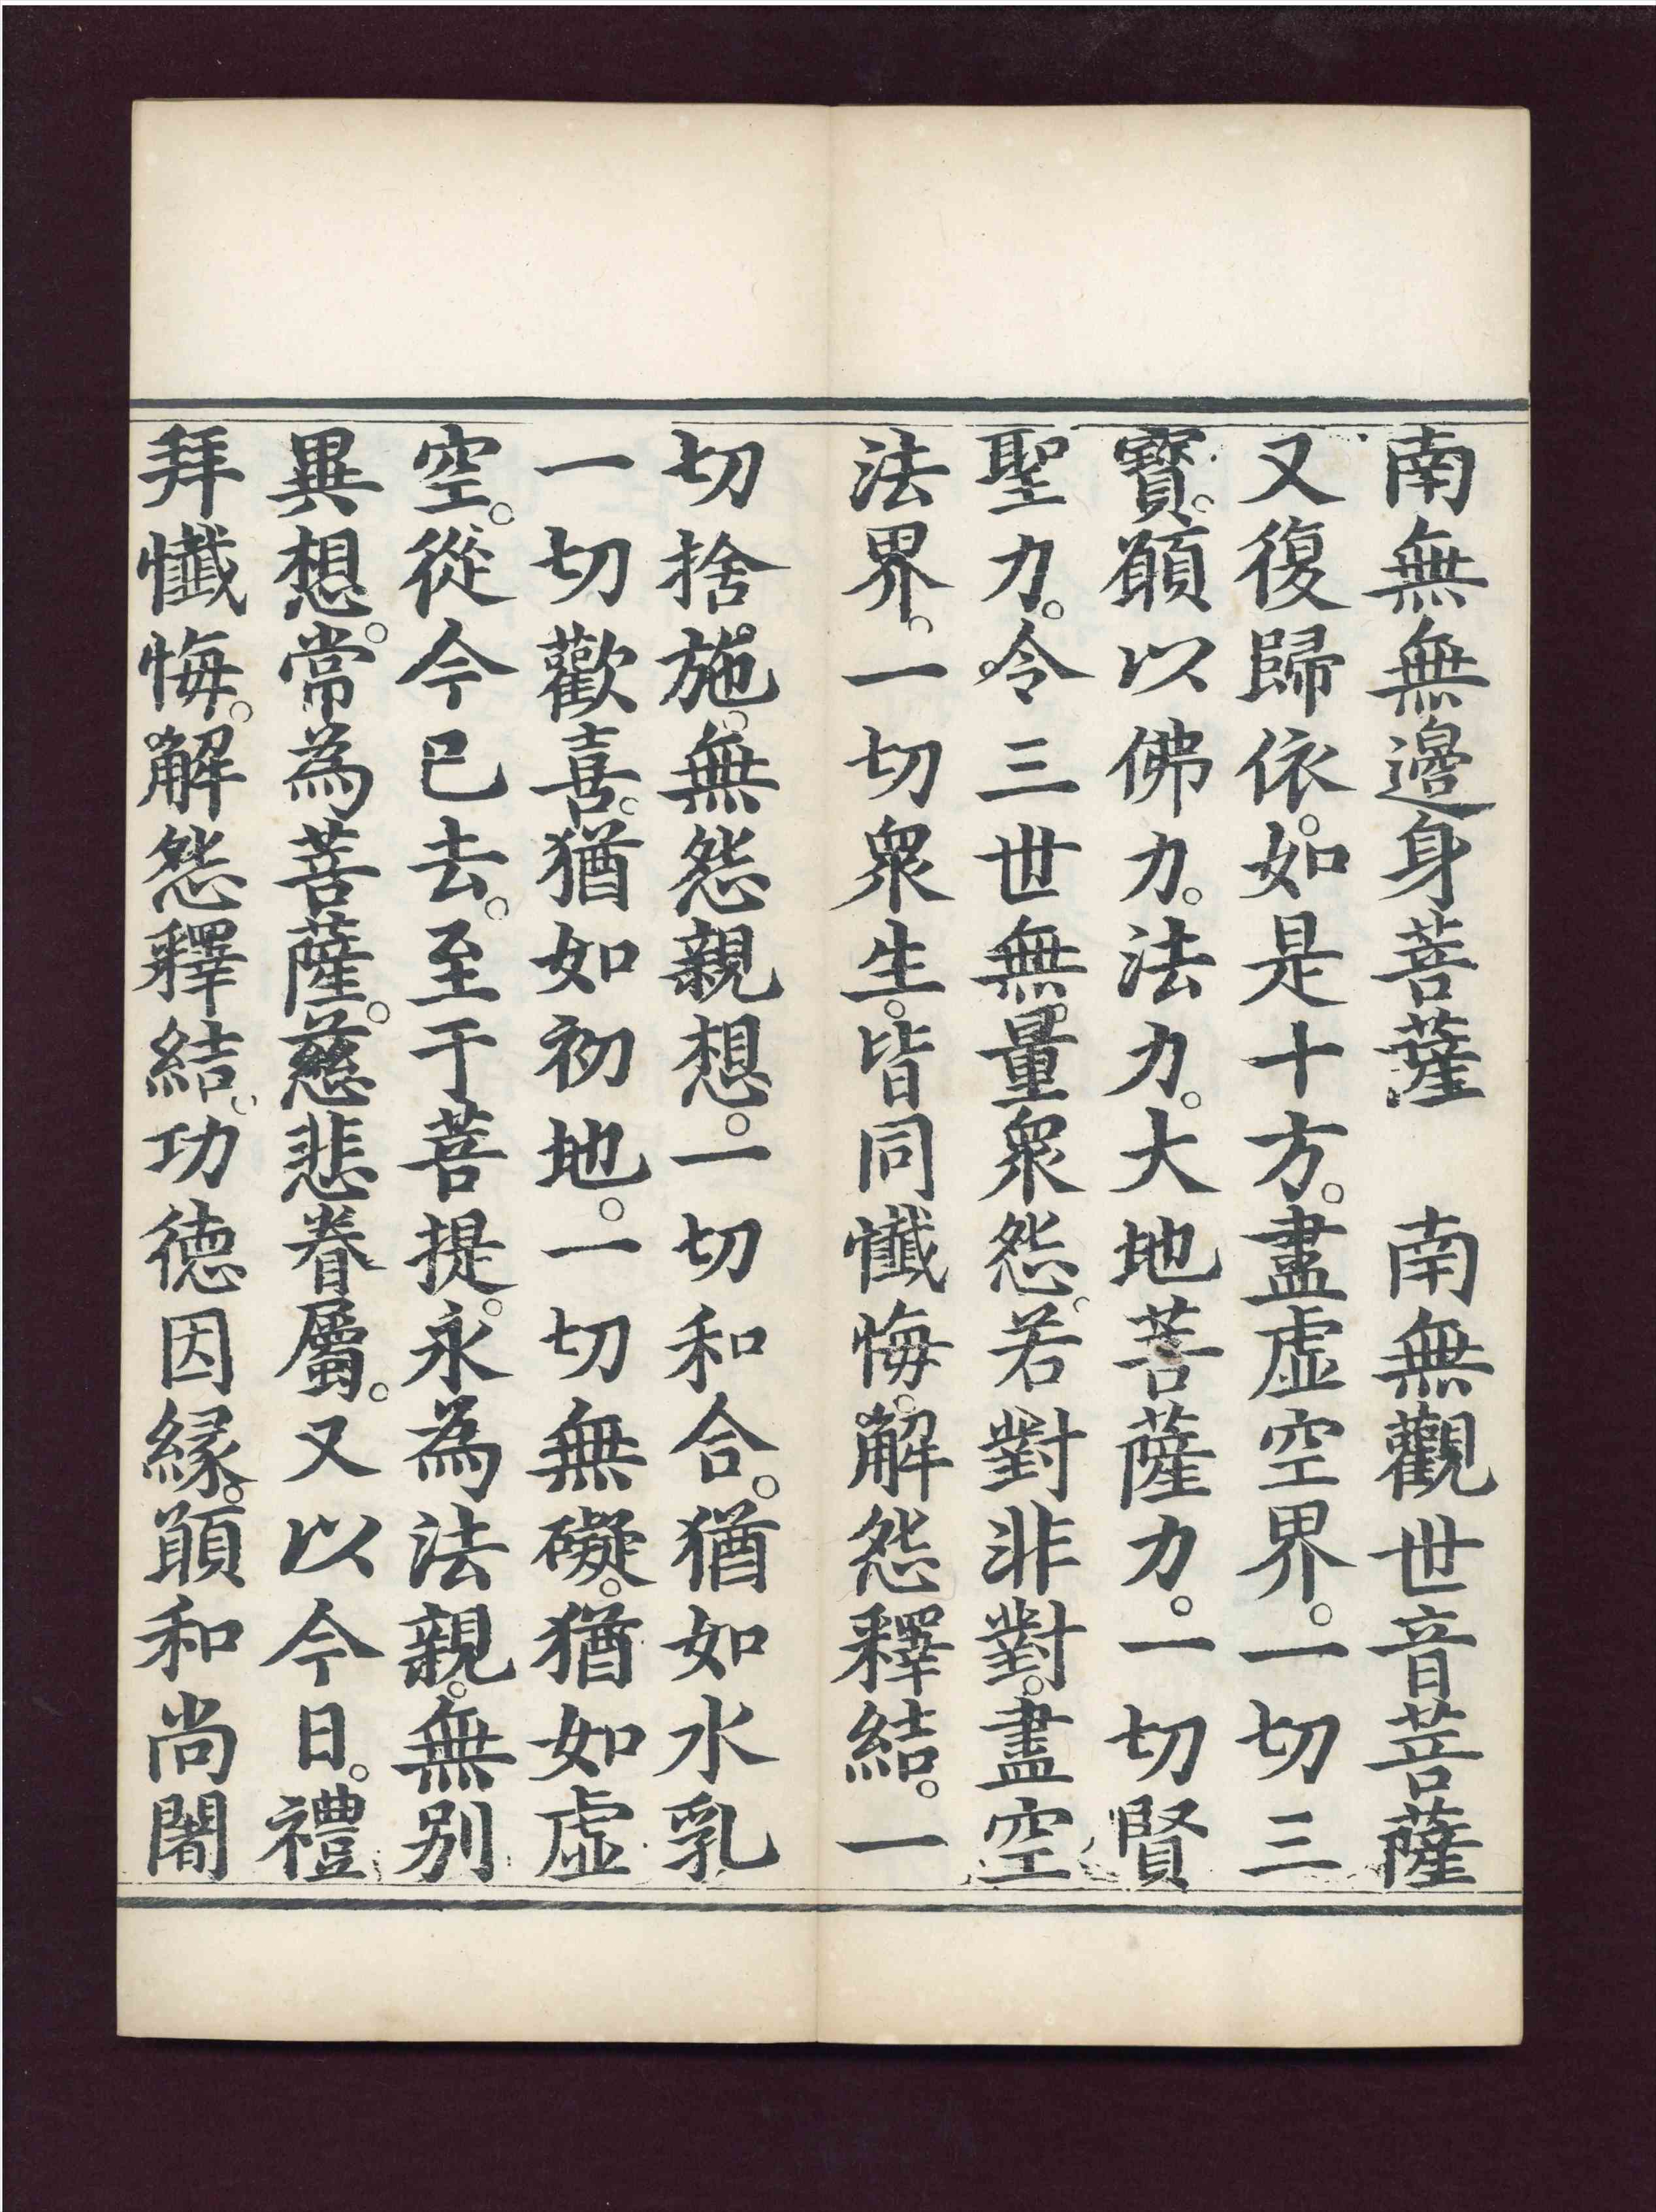 南無無邊身菩薩　南無觀世音菩薩
又復歸依。如是十方。盡虛空界。一切三
寶。願以佛力。法力。大地菩薩力。一切賢
聖力。令三世無量眾怨。若對非對。盡空
法界。一切眾生。皆同懺悔。解怨釋結。一
切捨施。無怨親想。一切和合。猶如水乳
一切歡喜。猶如初地。一切無礙。猶如虛
空。從今已去。至于菩提。永為法親。無別
異想。常為菩薩。慈悲眷屬。又以今日。禮
拜懺悔。解怨釋結。功德因緣。願和尚闍